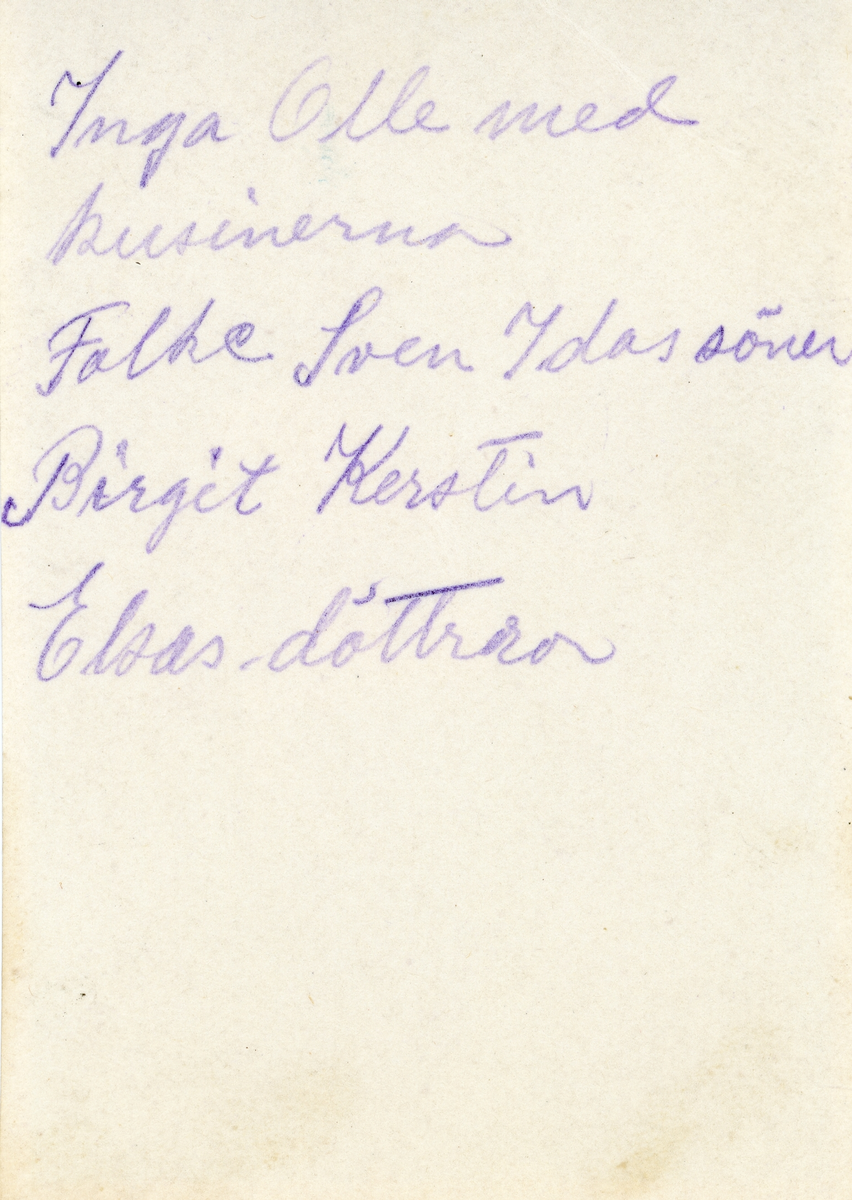 Inga Olle med
kusinerna
Folke Sven Idas söner
Birgit Kerstin
Elsas-döttrar